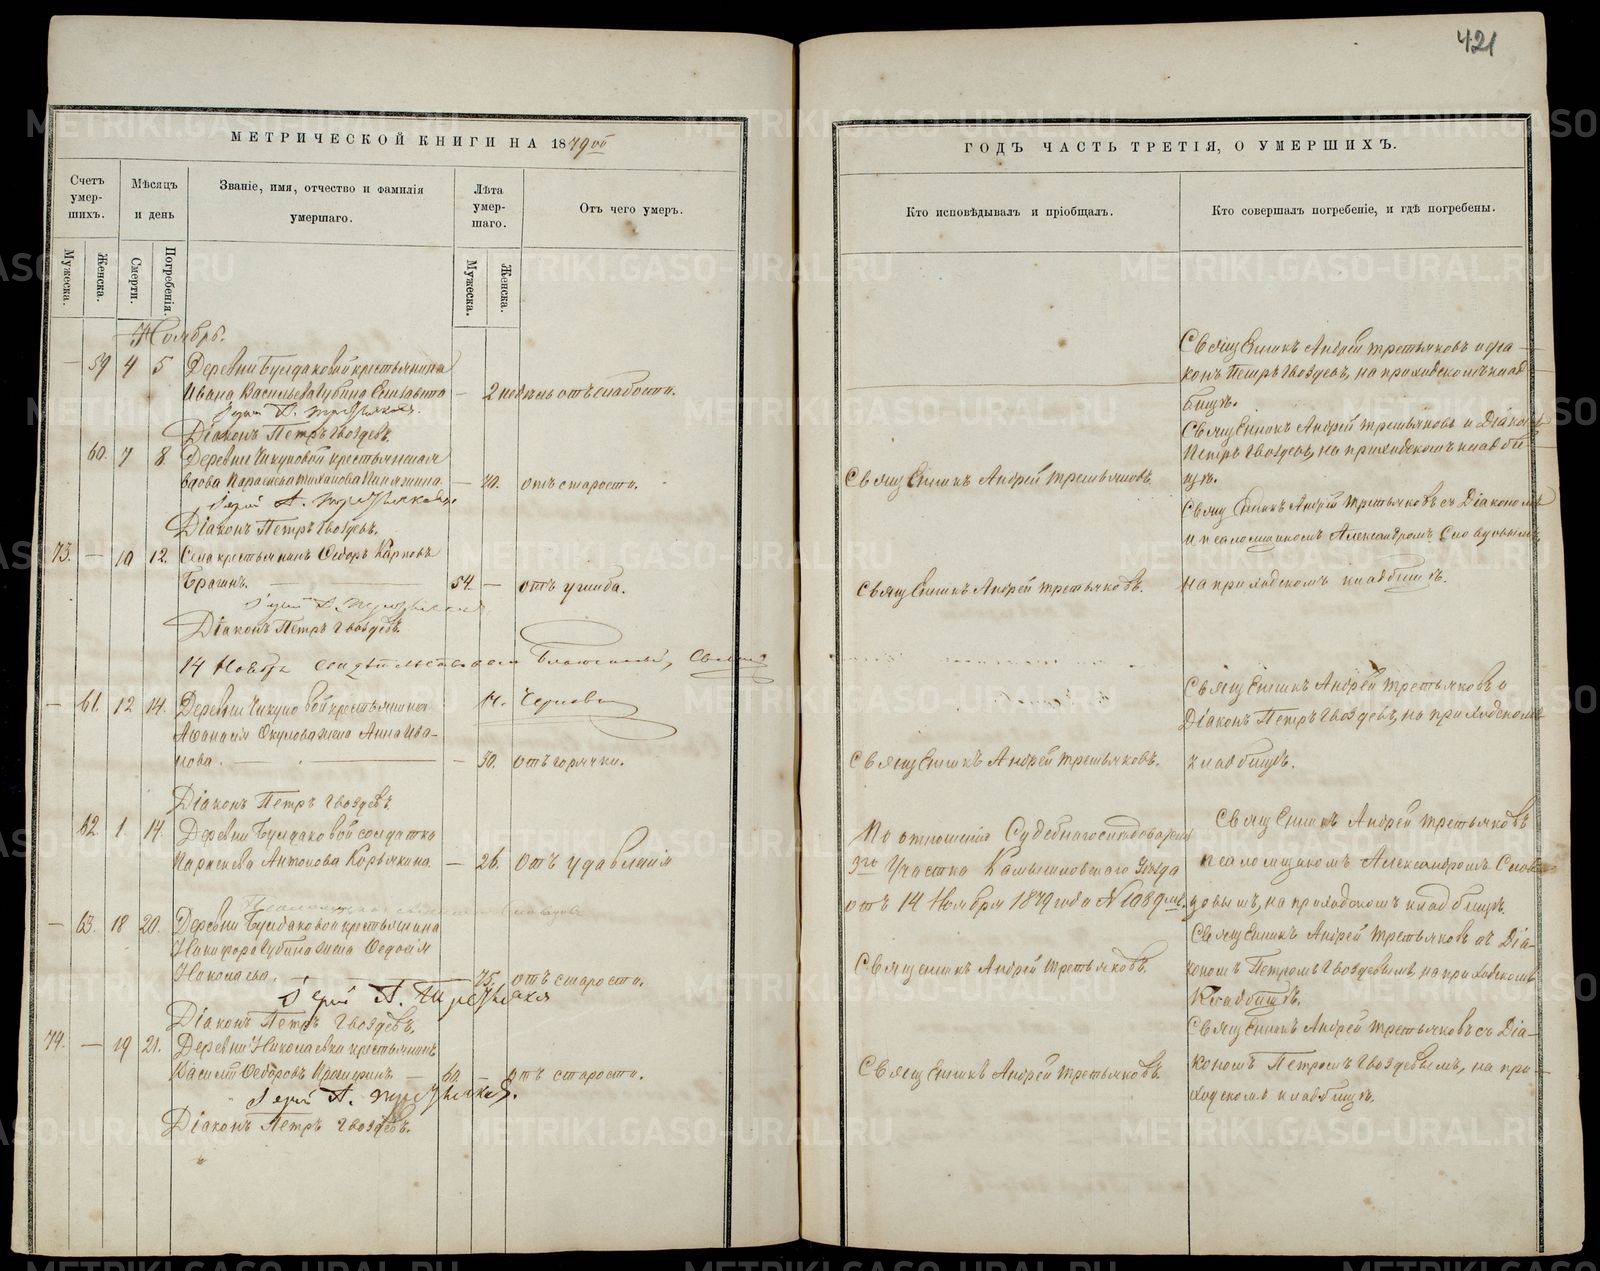 421
МЕТРИЧЕСКОЙ КНИГИ НА 1879ый
Счетъ умер-шихъ.
Мѣсяцъ и день
Званіе, имя, отчество и фамилія умершаго.
Лѣта умер-шаго.
Отъ чего умеръ.
Мужеска.
Женска.
Смерти.
Погребенія.
Мужеска.
Женска.
Ноябрь.
— 59 4 5 Деревни Булдаковой крестьянина
Ивана Васильева Губина Елисавета — 2 недѣль отъ слабости.
Іерей А. Третьяковъ.
Діаконъ Петръ Гвоздевъ.
60. 7 8. Деревни Чикуновой крестьянская
вдова Параскева — 70. отъ старости.
Іерей А. Третьяковъ.
Діаконъ Петръ Гвоздевъ.
73. — 10 12. Села крестьянинъ Ѳедоръ Карповъ
Брагинъ. — 54. — отъ ушиба.
Іерей А. Третьяковъ
Діаконъ Петръ Гвоздевъ.
14 Ноября
— 61. 12 14. Деревни Чикуновой крестьянина
Аѳанасія Окулова жена Анна Ива-
нова. — — 30. отъ горячки.
Діаконъ Петръ Гвоздевъ.
62. 1. 14. Деревни Булдаковой солдатка
Параскева Антонова Корякина. — 26. отъ удавленія
— 63. 18 20. Деревни Булдаковой крестьянина
Никифора Губина жена Ѳедосія
Николаева. — 75. отъ старости.
Іерей А. Третьяковъ
Діаконъ Петръ Гвоздевъ.
74. — 19 21. Деревни Николаевки крестьянинъ
Василій Ѳедоровъ — 60. отъ старости.
Іерей А. Третьяковъ.
Діаконъ Петръ Гвоздевъ.
ГОДЪ ЧАСТЬ ТРЕТІЯ, О УМЕРШИХЪ.
Кто исповѣдывалъ и пріобщалъ.
Кто совершалъ погребеніе, и гдѣ погребены.
Священникъ Андрей Третьяковъ и діа-
конъ Петръ Гвоздевъ, на приходскомъ клад-
бищѣ.
Священникъ Андрей Третьяковъ.
Священникъ Андрей Третьяковъ и Діаконъ
Петръ Гвоздевъ, на приходскомъ кладби-
щѣ.
Священникъ Андрей Третьяковъ.
Священникъ Андрей Третьяковъ съ Діакономъ
и псаломщикомъ Александромъ Словцовымъ,
на приходскомъ кладбищѣ.
Священникъ Андрей Третьяковъ.
Священникъ Андрей Третьяковъ и
Діаконъ Петръ Гвоздевъ, на приходскомъ
кладбищѣ.
По отношенію Судебнаго слѣдователя
3го Участка Камышловскаго Уѣзда
отъ 14 Ноября 1879 года № 1089
Священникъ Андрей Третьяковъ
псаломщикомъ Александромъ Слов-
цовымъ, на приходскомъ кладбищѣ.
Священникъ Андрей Третьяковъ.
Священникъ Андрей Третьяковъ съ Діа-
кономъ Петромъ Гвоздевымъ, на приходскомъ
кладбищѣ.
Священникъ Андрей Третьяковъ.
Священникъ Андрей Третьяковъ съ Діа-
кономъ Петромъ Гвоздевымъ, на при-
ходскомъ кладбищѣ.
METRIKI.GASO-URAL.RU